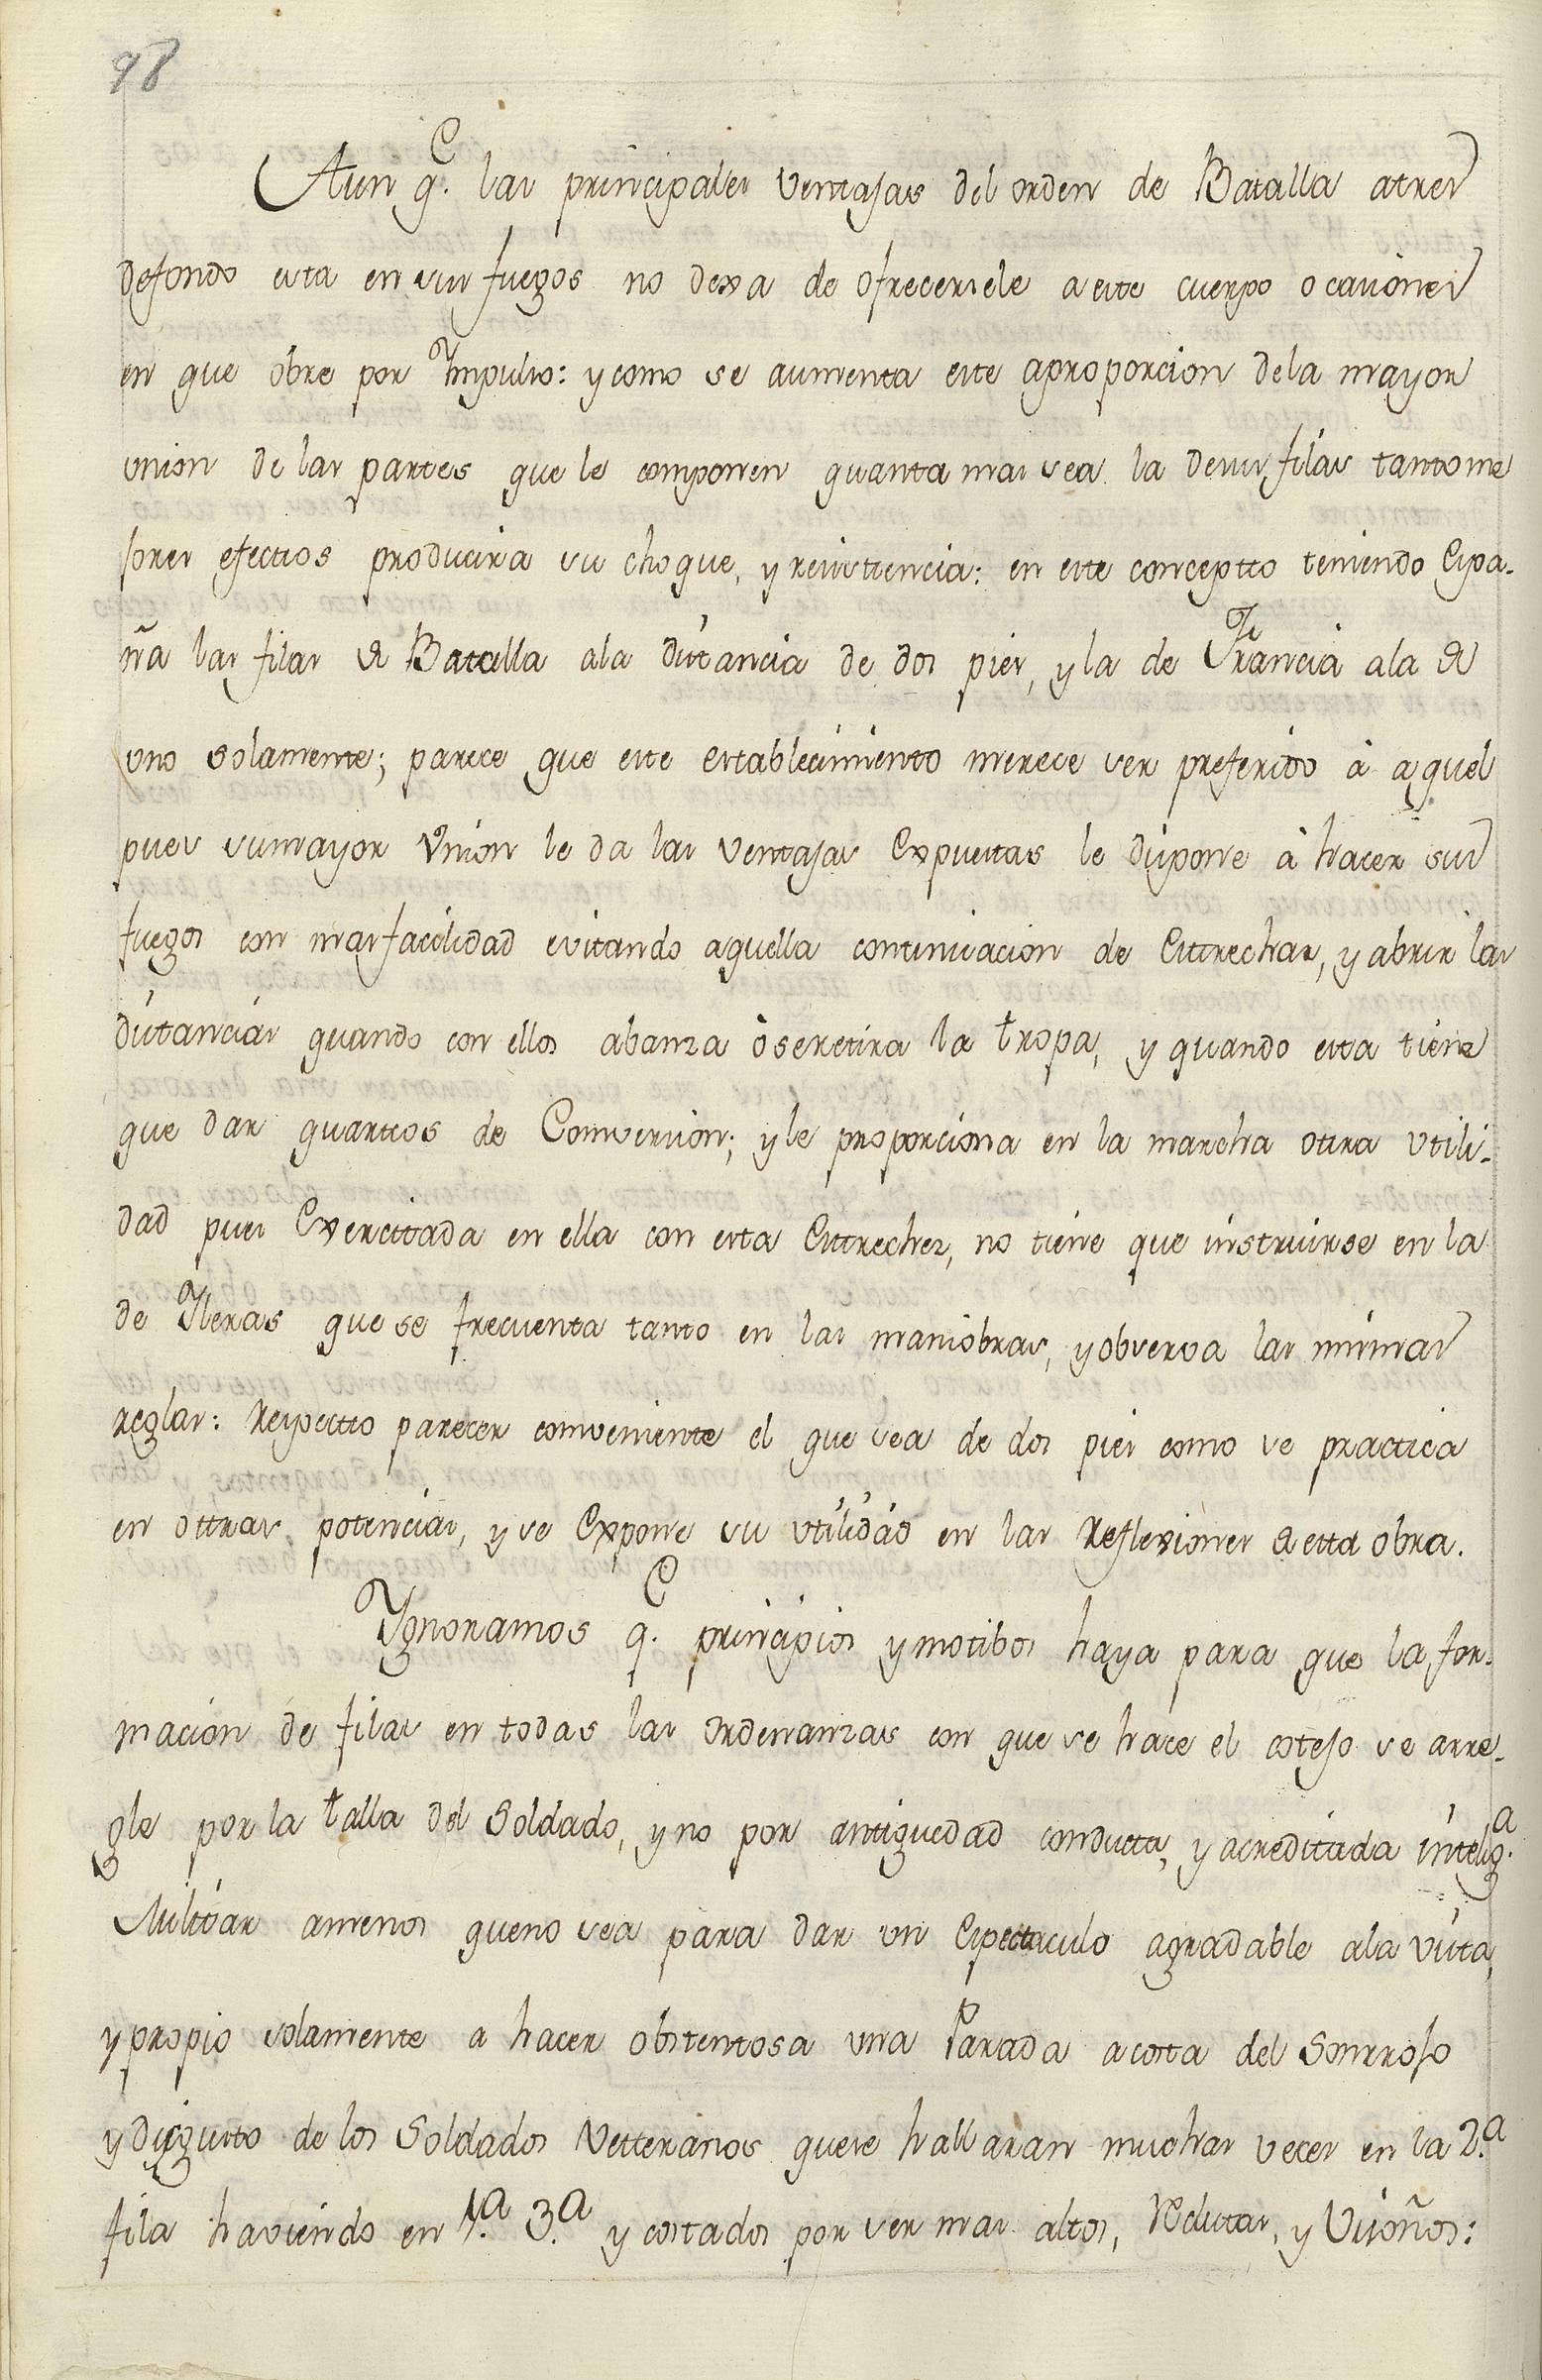 98
Aun q.e las principales ventajas del orden de Batalla atres
defondo esta en sus fuegos no dexa de ofrecersele aeste cuerpo ocasiones
en que obre por Ympulso: y como se aumenta este aproporcion dela mayor
union de las partes que le componen quanta mas sea la desus filas tantome
jores efectos producira su choque, y resisttencia: en este conceptto teniendo Espa-
ña las filas de Batalla ala distancia de dos pies, y la de Francia ala de
uno solamente; parece que este establecimiento merece ser preferido à aquel
pues sumayor Vnion le da las ventajas Expuestas le dispone à hacer sus
fuegos con mas facilidad evitando aquella continuacion de Estrechar, y abrir las
distancias quando con ellos abanza òseretira la tropa, y quando esta tiene
que dar quartos de Conversion; y le proporciona en la marcha otra utili-
dad pues Exercitada en ella con esta Estrechez, no tiene que instruirse en la
de Yleras que se frecuenta tanto en las maniobras, y observa las mismas
reglas: Respecto parecer conveniente el que sea de dos pies como se practica
en ottras potencias, y se Expone su utilidad en las Reflexiones de etta obra.
Ygnoramos q.e principios y motibos haya para que la for-
macion de filas en todas las ordenanzas con que se hace el cotejo se arre-
gle por la talla del Soldado, y no por antiguedad conducta, y acreditada intelig.a
Militar amenos queno sea para dar un Espectaculo agradable ala vista,
y propio solamente a hacer obstentosa una Parada acosta del Sonrrojo
y disgusto de los Soldados Vetteranos quese hallaran muchas veces en la 2.a
fila haviendo en 1.a 3.a y costados por ser mas altos, Reclutas, y Visoños: